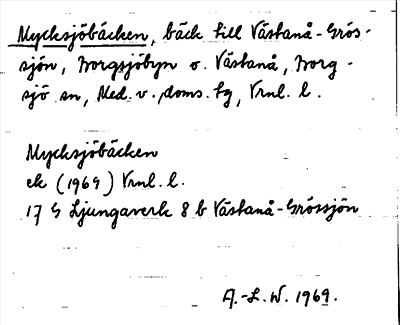 Mycksjöbäcken, bäck till Västanå-Grös-
sjön, Borgsjöbyn o. Västanå, Borg-
sjö sn, Med. v. doms. tg, Vrnl. l.
Mycksjöbäcken
ek (1969) Vrnl. l.
17 G Ljungaverk 8 b Västanå-Grössjön
A.-L. W. 1969.